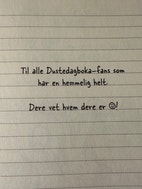 Til alle Dustedagboka-fans som
har en hemmelig helt.
Dere vet hvem dere er ☺!